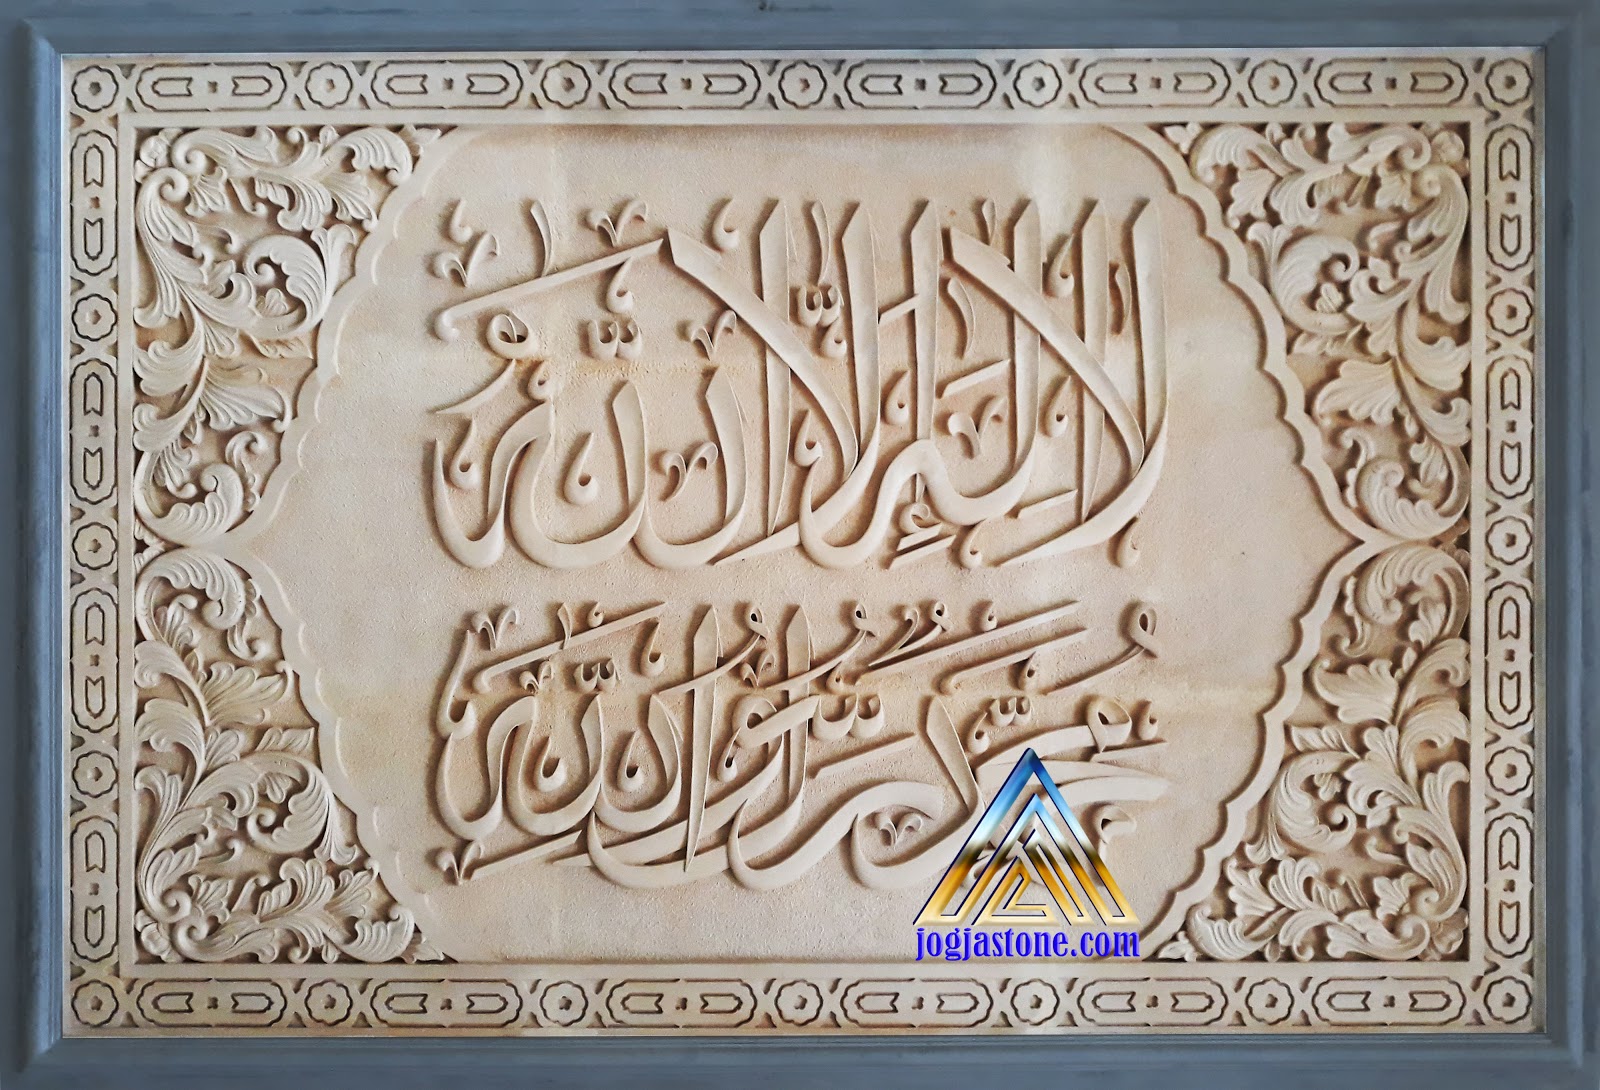 لا إله إلا الله
محمد رسول الله
jogjastone.com